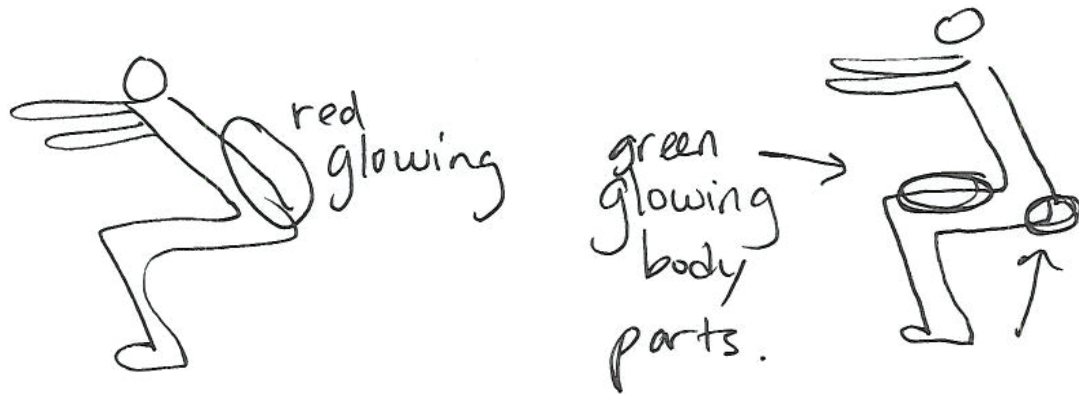 red
glowing
green
glowing
body
parts.